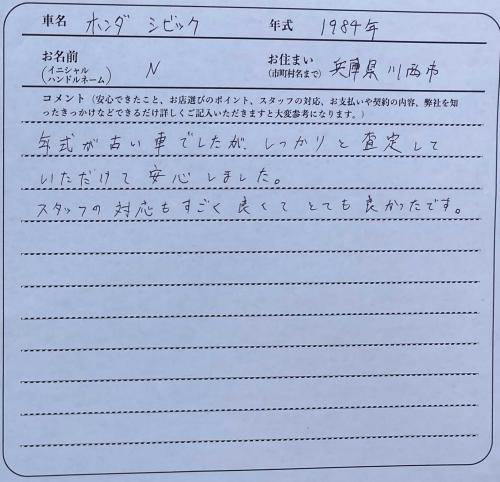 車名 ホンダ シビック 年式 1984年
お名前 (イニシャル ハンドルネーム) N お住まい (市町村名まで) 兵庫県川西市
コメント (安心できたこと、お店選びのポイント、スタッフの対応、お支払いや契約の内容、弊社を知
ったきっかけなどできるだけ詳しくご記入いただきますと大変参考になります。)
年式が古い車でしたが、しっかりと査定して
いただけて安心しました。
スタッフの対応もすごく良くてとても良かったです。